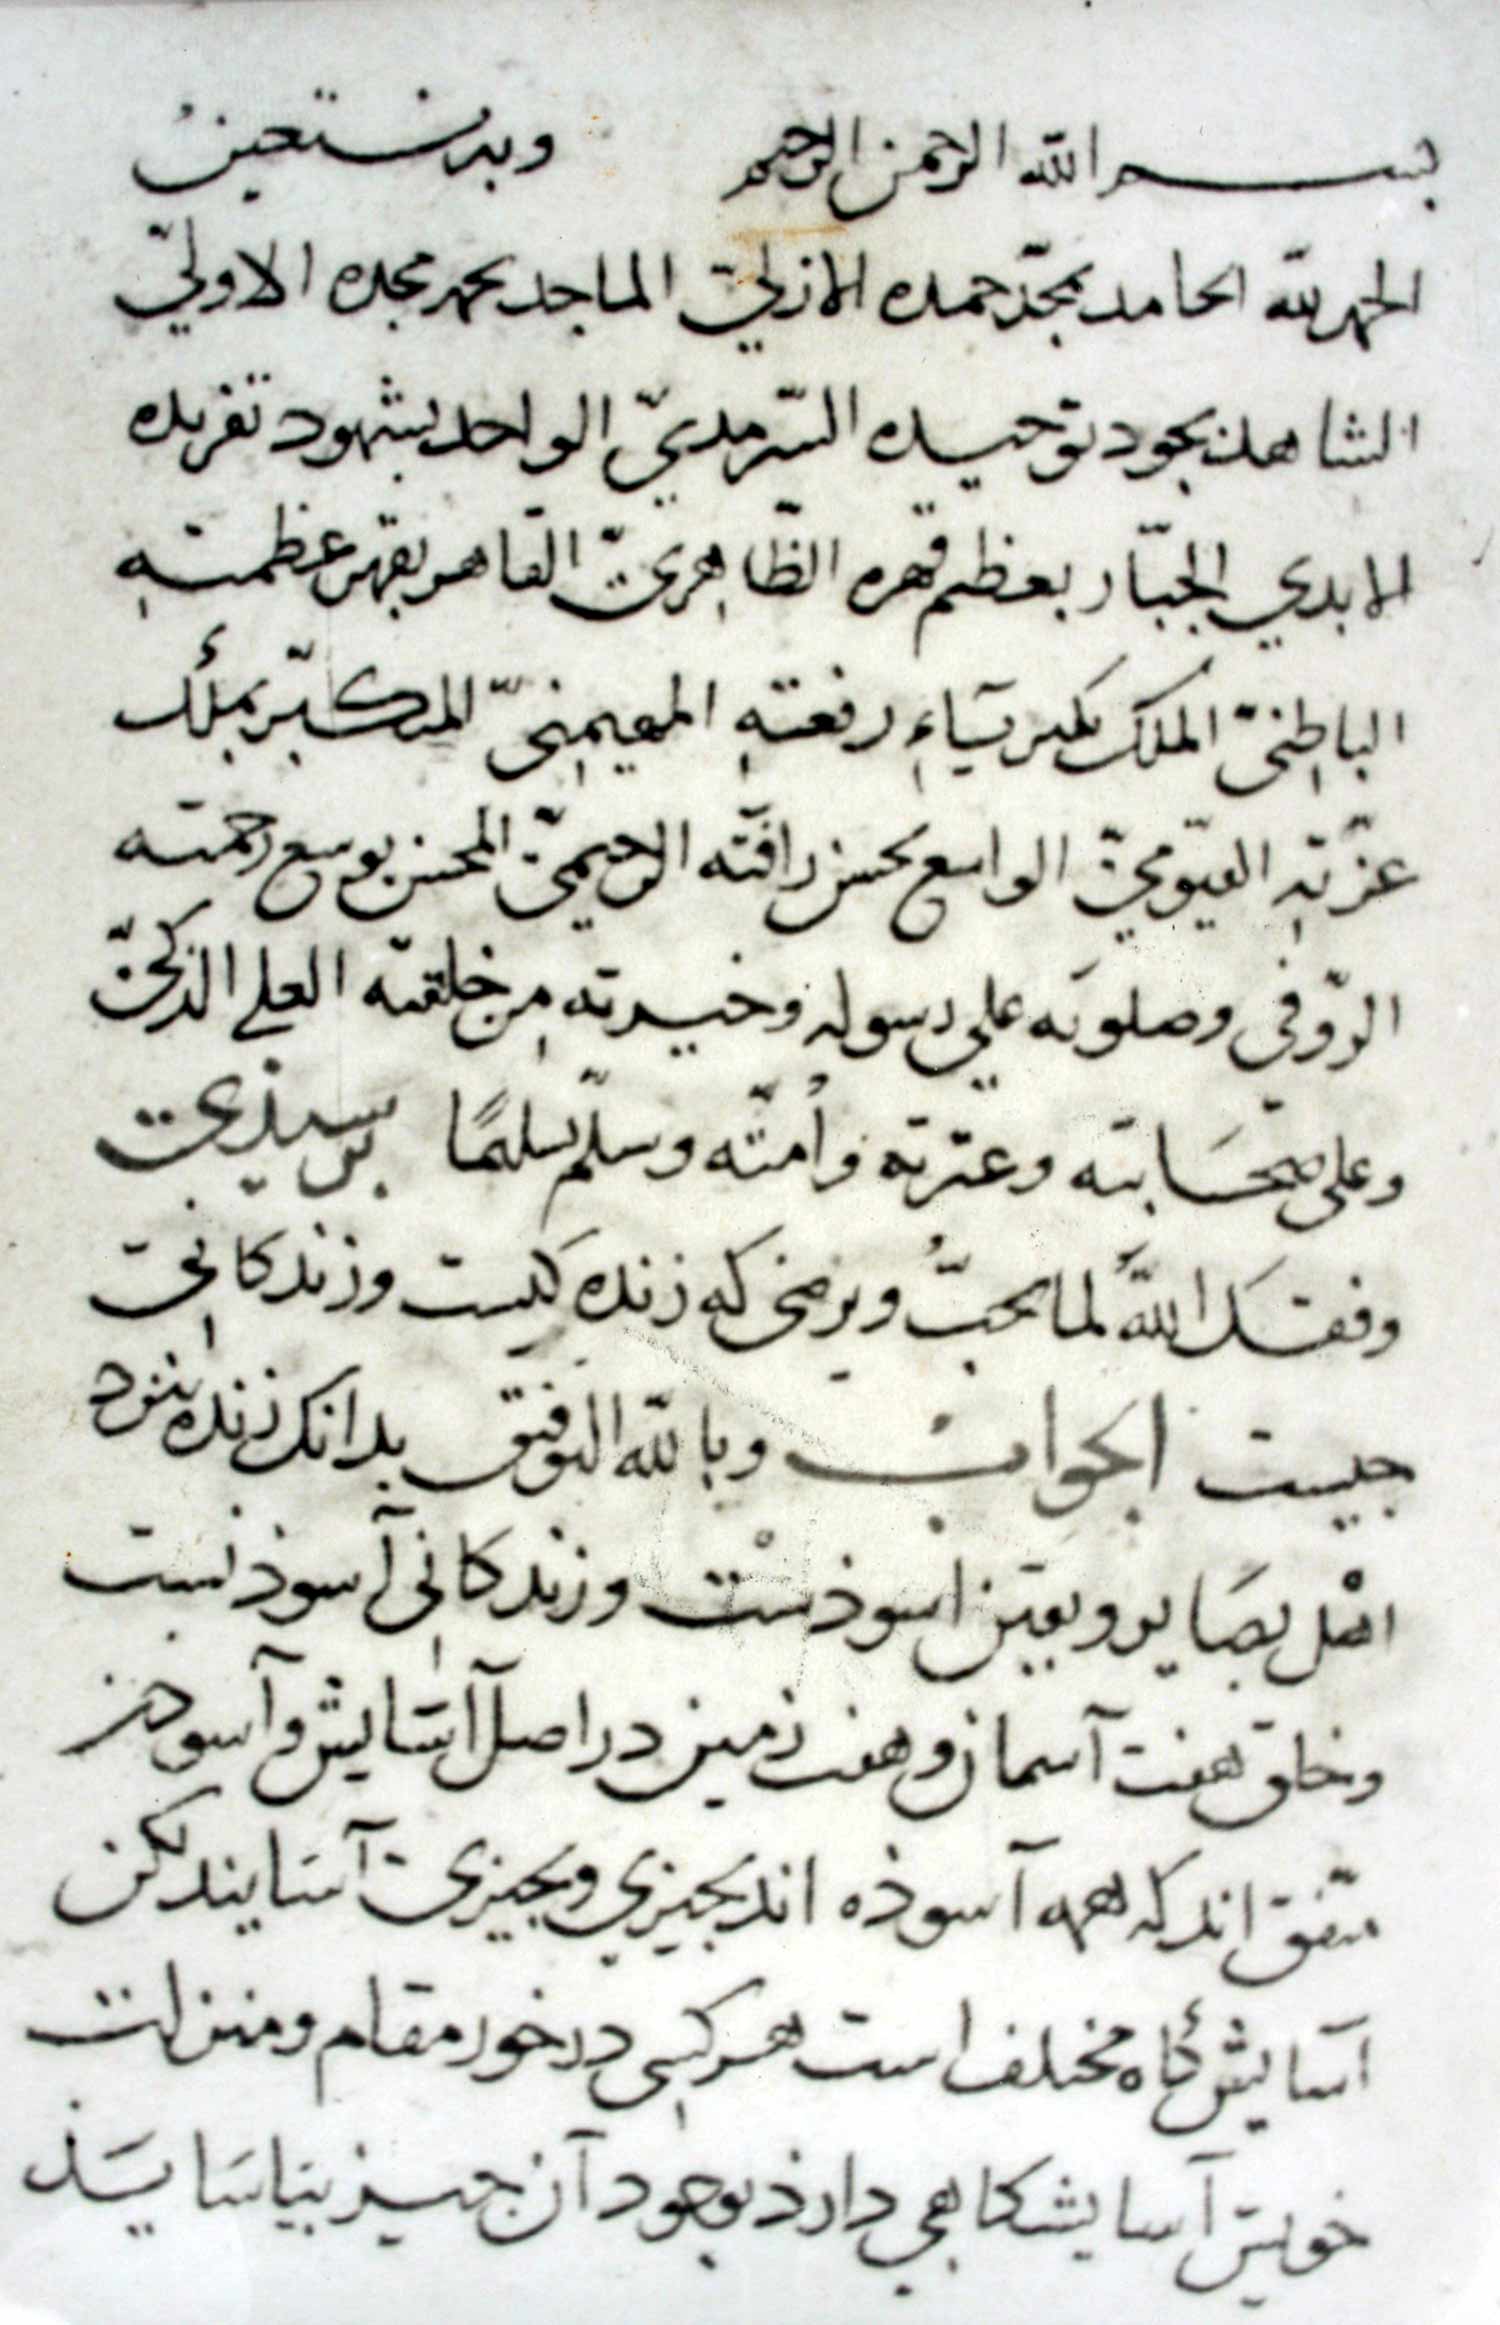 بسم الله الرحمن الرحيم وبه نستعين
الحمد لله الحامد بمجد حمده الازليّ الماجد بحمد مجده الاوليّ
الشاهد بجود توحيده السّرمديّ الواحد بشهود تفريده
الابدي الجبّار بعظم قهره الظّاهريّ القاهر بقهر عظمته
الباطنيّ الملك بكبرياء رفعته المهيمنيّ المتكبّر بملك
عزّته القيّوميّ الواسع بحسن رأفته الرحيميّ المحسن بوسع رحمته
الرّوفي وصلوته علي رسوله وخيرته من خلقه العلي الذكيّ
وعلى صحابته وعترته وأمّته وسلّم تسليمًا پرسيذي
وفقك اللّه لما يحبّ ويرضى كه زنده كيست وزندكاني
چيست الجواب وبالله التوفيق بدانك زنده بنزد
اهل بصاير ويقين اسوذست وزندكاني آسوذنست
وخلق هفت آسمان وهفت زمين در اصل آسايش وآسودن
متفق اند كه همه آسوذه اند بچيزي وبچيزي آسايند لكن
آسايش گاه مختلف است هر كسى در خور مقام ومنزلت
خويش آسايشكاهي دارذ بوجود آن چيز بياسايذ